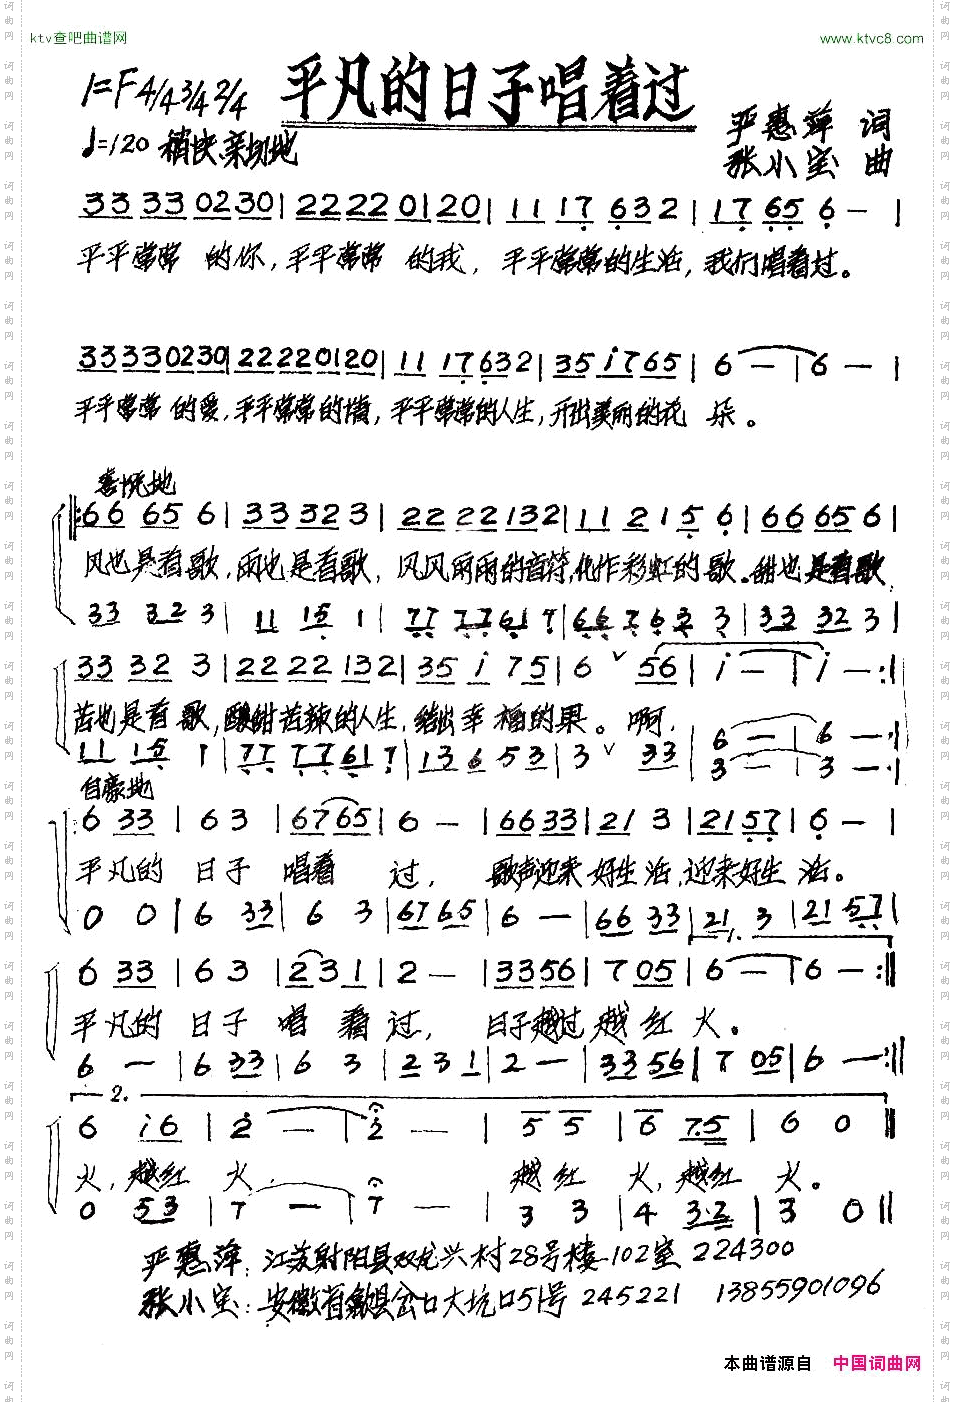 ktv查吧曲谱网 www.ktvc8.com
平凡的日子唱着过
1=F 4/4 3/4 2/4
♩=120 稍快 亲切地
严惠萍 词
张小宝 曲
33 33 02 30 | 22 22 01 20 | 11 17 632 | 17 65 6 — |
平平常常 的你，平平常常 的我，平平常常的生活，我们唱着过。
33 33 02 30 | 22 22 01 20 | 11 17 632 | 35 i7 65 | 6 — | 6 — |
平平常常 的爱，平平常常的情，平平常常的人生，开出美丽的花 朵。
喜悦地
‖: 66 65 6 | 33 323 3 | 22 22 132 | 11 21 5 6 | 66 65 6 |
风也是首歌，雨也是首歌，风风雨雨的音符，化作彩虹的歌。甜也是首歌，
33 32 3 | 11 15 1 | 77 77 61 7 | 66 76 62 3 | 33 32 3 |
33 32 3 | 22 22 132 | 35 i 75 | 6 ˅ 56 | i — | i — :|
苦也是首歌，酿甜苦辣的人生，结出幸福的果。啊，
11 15 1 | 77 77 61 7 | 13 6 53 | 3 ˅ 33 | 6 — | 6 — :|
3 — | 3 — :|
自豪地
6 33 | 6 3 | 67 65 | 6 — | 66 33 | 21 3 | 21 57 | 6 — |
平凡的 日子 唱着 过， 歌声迎来 好生活，迎来好生 活。
0 0 | 6 33 | 6 3 | 67 65 | 6 — | 66 33 | 21 3 | 21 57 |
1.
6 33 | 6 3 | 23 1 | 2 — | 33 56 | 7 05 | 6 — | 6 — :‖
平凡的 日子 唱 着 过， 日子越过 越 红 火。
6 — | 6 33 | 6 3 | 23 1 | 2 — | 33 56 | 7 05 | 6 — :‖
2.
6 i6 | 2 — | 2 — | 5 5 | 6 7.5 | 6 0 ‖
火，越红 火， 越 红 火，越红 火。
0 53 | 7 — | 7 — | 3 3 | 4 3.2 | 3 0 ‖
严惠萍：江苏射阳县双龙兴村28号楼-102室 224300
张小宝：安徽省歙县岔口大坑口51号 245221 13855901096
本曲谱源自 中国词曲网